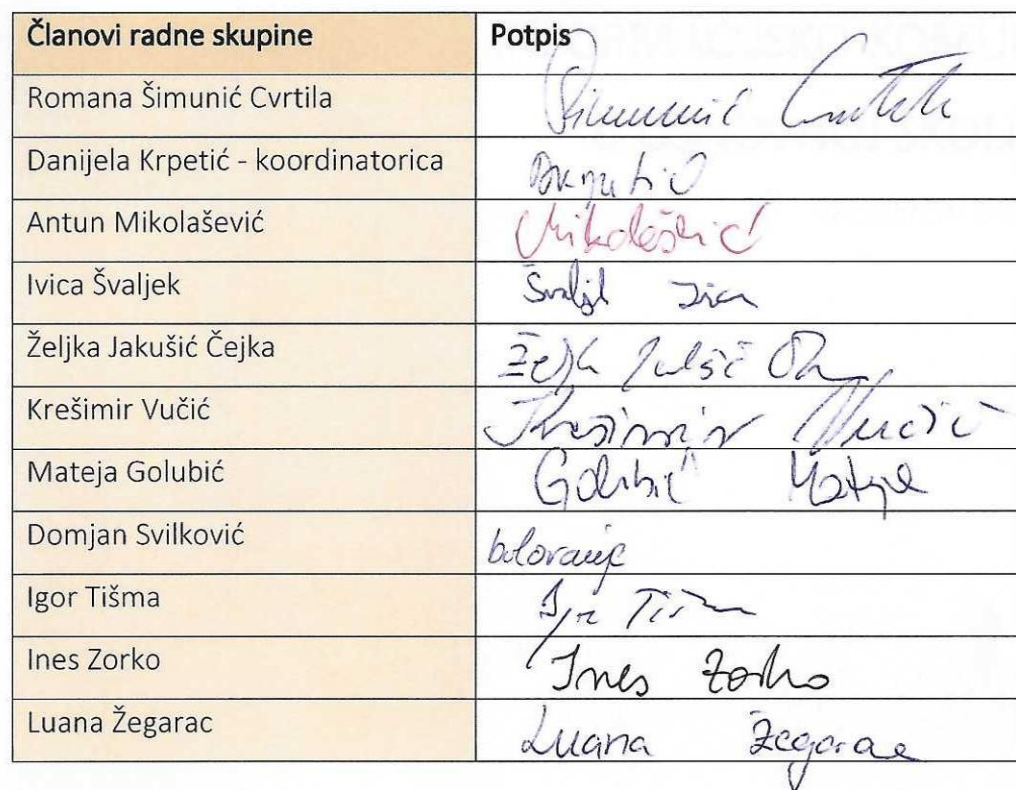 Članovi radne skupine Potpis
Romana Šimunić Cvrtila Šimunić Cvrtila
Danijela Krpetić - koordinatorica DKrpetić
Antun Mikolašević Mikolašević
Ivica Švaljek Švaljek Ivica
Željka Jakušić Čejka Željka Jakušić
Krešimir Vučić Krešimir Vučić
Mateja Golubić Golubić Mateja
Domjan Svilković bolovanje
Igor Tišma Igor Tišma
Ines Zorko Ines Zorko
Luana Žegarac Luana Žegarac